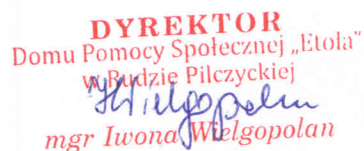 DYREKTOR
Domu Pomocy Społecznej „Etola”
w Rudzie Pilczyckiej
IWielgopolan
mgr Iwona Wielgopolan